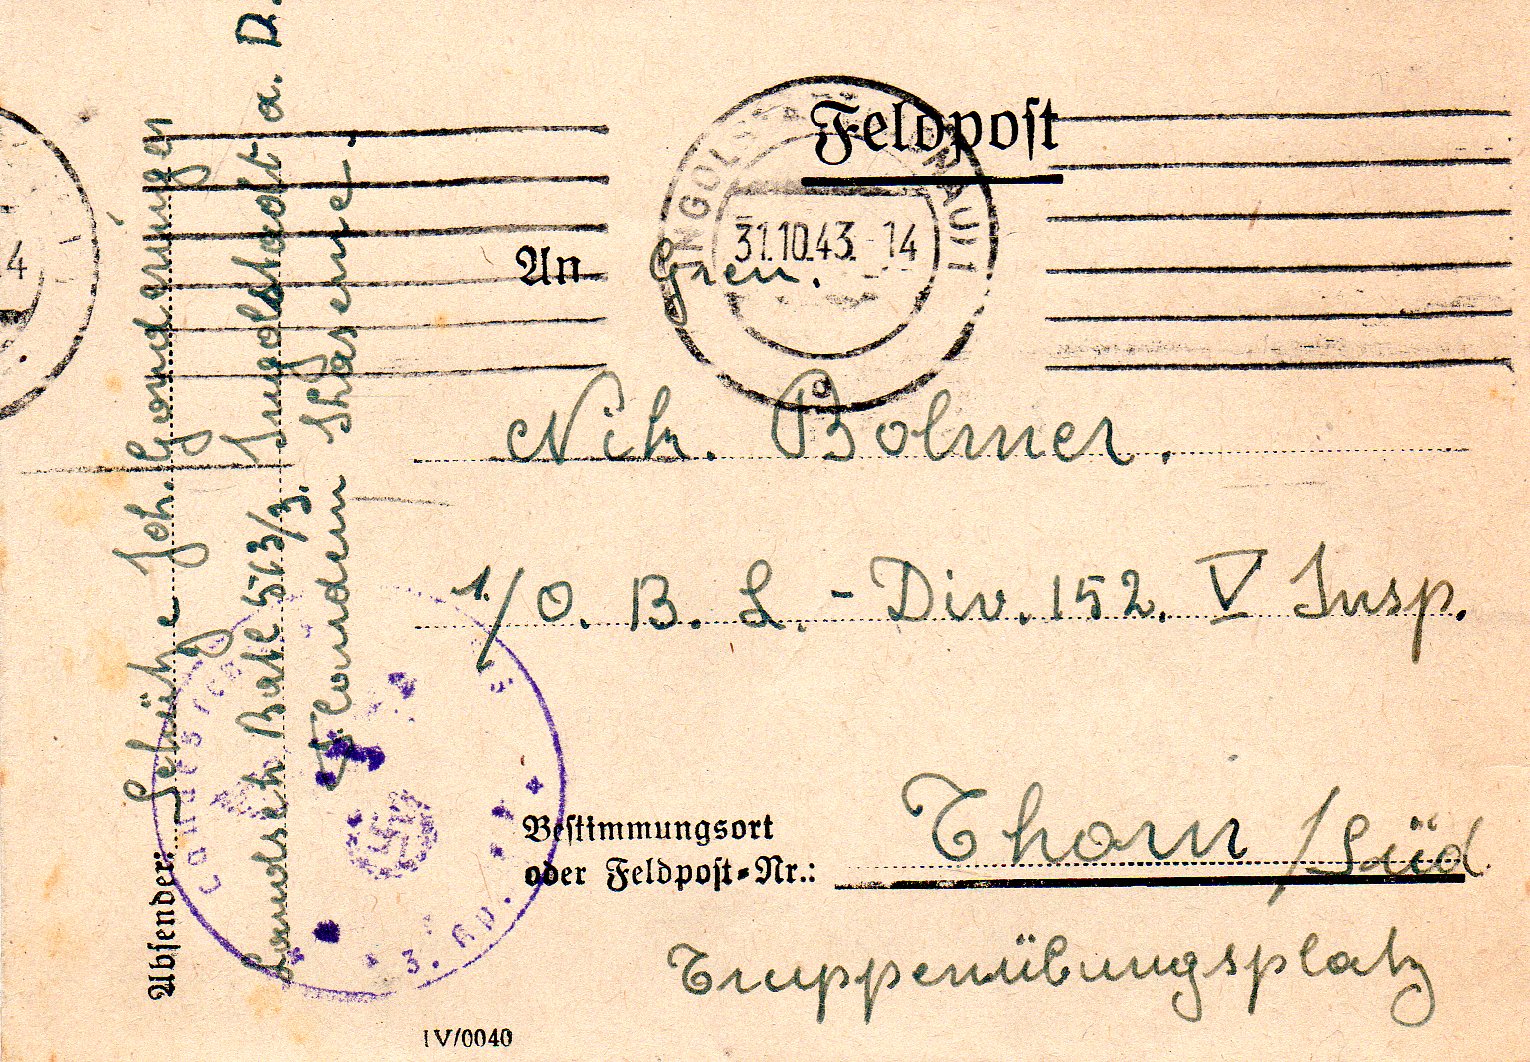 Feldpost
INGOLSTADT (DONAU) 1
31.10.43. 14
An Gren.
Nik. Bolmer.
1./O. B. L. - Div. 152. V Insp.
Bestimmungsort
oder Feldpost-Nr.: Thorn / Süd
Truppenübungsplatz
Absender: Schütze Joh. Gonderinger
Landssch Batl 513/3. Ingolstadt a. D.
Flandern Kaserne.
3. Kp.
IV/0040
4